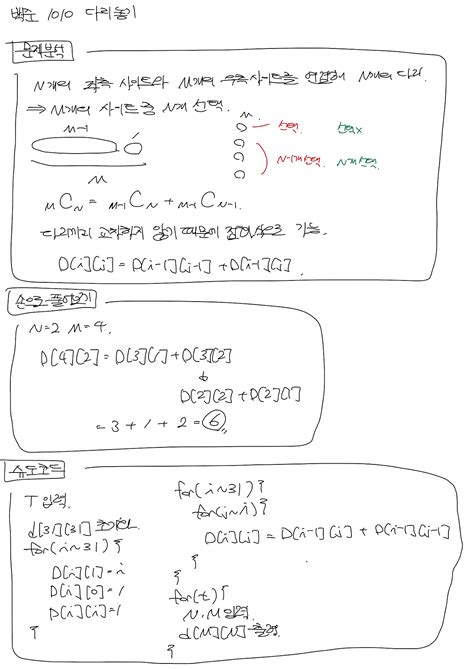 백준 1010 다리놓기
문제분석
N개의 좌측 사이트와 M개의 우측 사이트를 연결해 N개의 다리.
⇒ M개의 사이트 중 N개 선택.
M-1
M
M
선택.
선택x
N-1개 선택.
N개 선택.
MCN = M-1CN + M-1CN-1.
다리끼리 교차하지 않기 때문에 점화식으로 가능.
D[i][j] = D[i-1][j-1] + D[i-1][j].
손으로 풀어보기
N=2 M=4.
D[4][2] = D[3][1] + D[3][2]
D[2][2] + D[2][1]
= 3 + 1 + 2 = 6
슈도코드
T 입력.
d[31][31] 초기화
for(i~31){
D[i][1]=i
D[i][0]=1
D[i][i]=1
}
for(i~31){
for(j~i){
D[i][j] = D[i-1][j] + D[i-1][j-1]
}
}
for(t){
N.M 입력.
d[M][N] 출력.